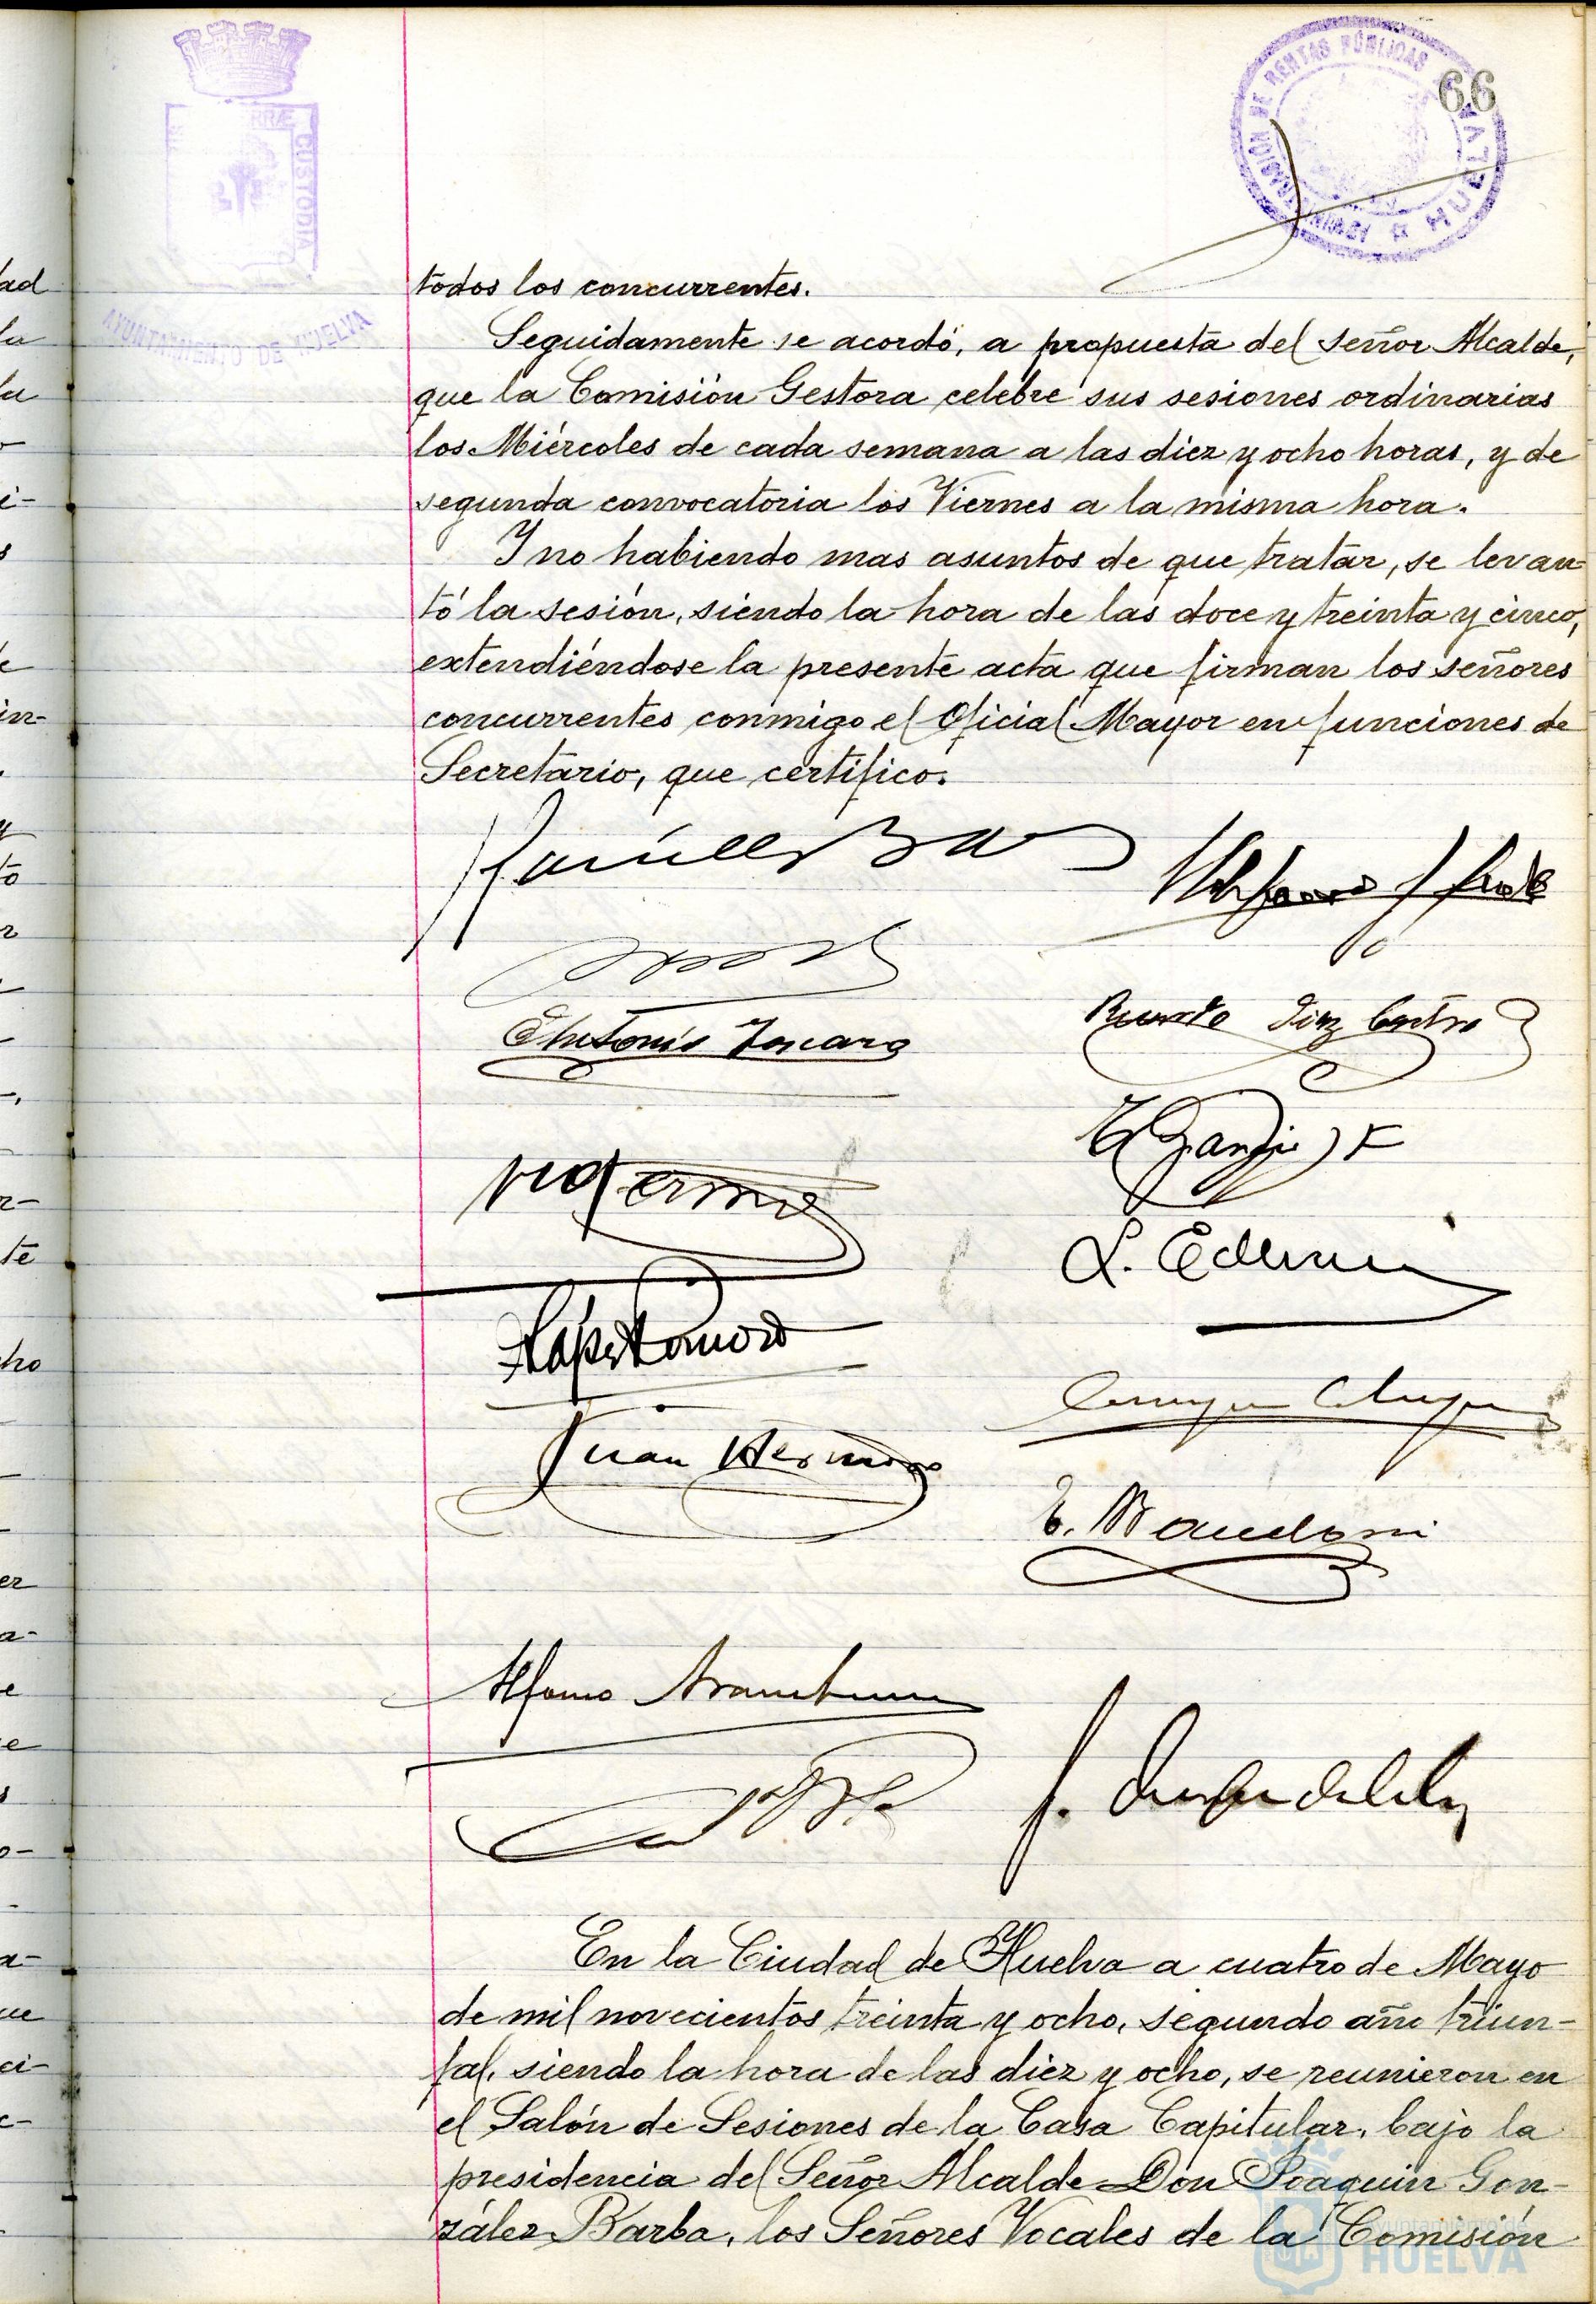 66
ADMINISTRACIÓN DE RENTAS PÚBLICAS
HUELVA
CUSTODIA
AYUNTAMIENTO DE HUELVA
todos los concurrentes.
Seguidamente se acordó, a propuesta del señor Alcalde,
que la Comisión Gestora celebre sus sesiones ordinarias
los Miércoles de cada semana a las diez y ocho horas, y de
segunda convocatoria los Viernes a la misma hora.
Y no habiendo mas asuntos de que tratar, se levan=
tó la sesión, siendo la hora de las doce y treinta y cinco,
extendiéndose la presente acta que firman los señores
concurrentes conmigo el Oficial Mayor en funciones de
Secretario, que certifico.
Antonio
Juan
Alfonso
En la Ciudad de Huelva a cuatro de Mayo
de mil novecientos treinta y ocho, segundo año triun-
fal, siendo la hora de las diez y ocho, se reunieron en
el Salón de Sesiones de la Casa Capitular, bajo la
presidencia del Señor Alcalde Don Joaquin Gon-
zález Barba, los Señores Vocales de la Comisión
Ayuntamiento de
HUELVA